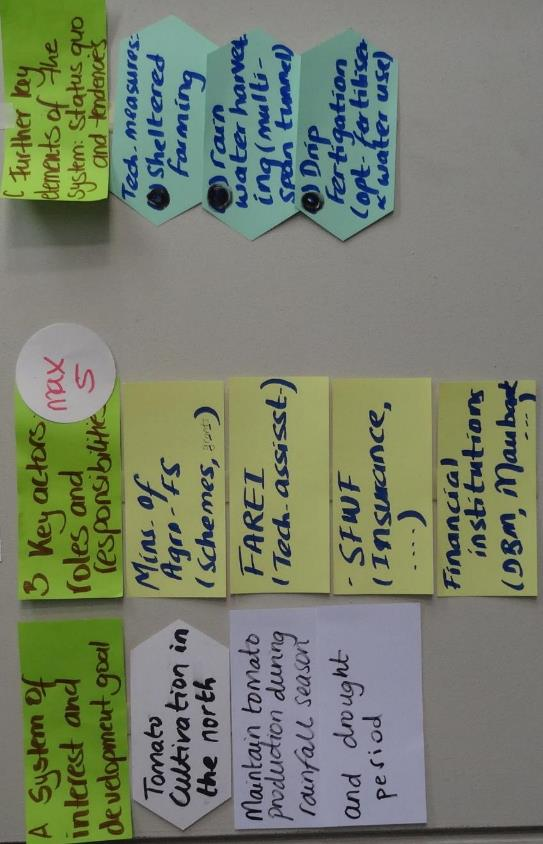 A System of
interest and
development goal
Tomato
Cultivation in
the north
Maintain tomato
production during
rainfall season
and drought
period
B Key actors,
roles and
responsibilities
max
5
Mins. of
Agro-FS
(Schemes,
FAREI
(Tech-assisst.)
- SFWF
(Insurance,
....)
Financial
institutions
(DBM, Maubank
...)
C Further key
elements of the
system: status quo
and tendencies
Tech-measures:
Sheltered
farming
rain
water harvest
ing (multi-
span tunnel)
Drip
Fertigation
(opt. fertiliser
& water use)